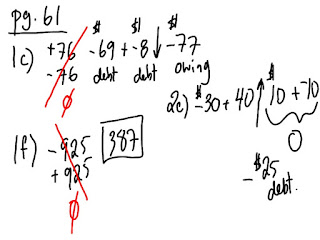 pg. 61
1c) +76 $ -69 + $ -8 ↓ $ -77
-76 debt debt owing
0
2c) $ -30 + 40 ↑ $ 10 + -10
0
1f) -925 387
+925
0
- $25
debt.